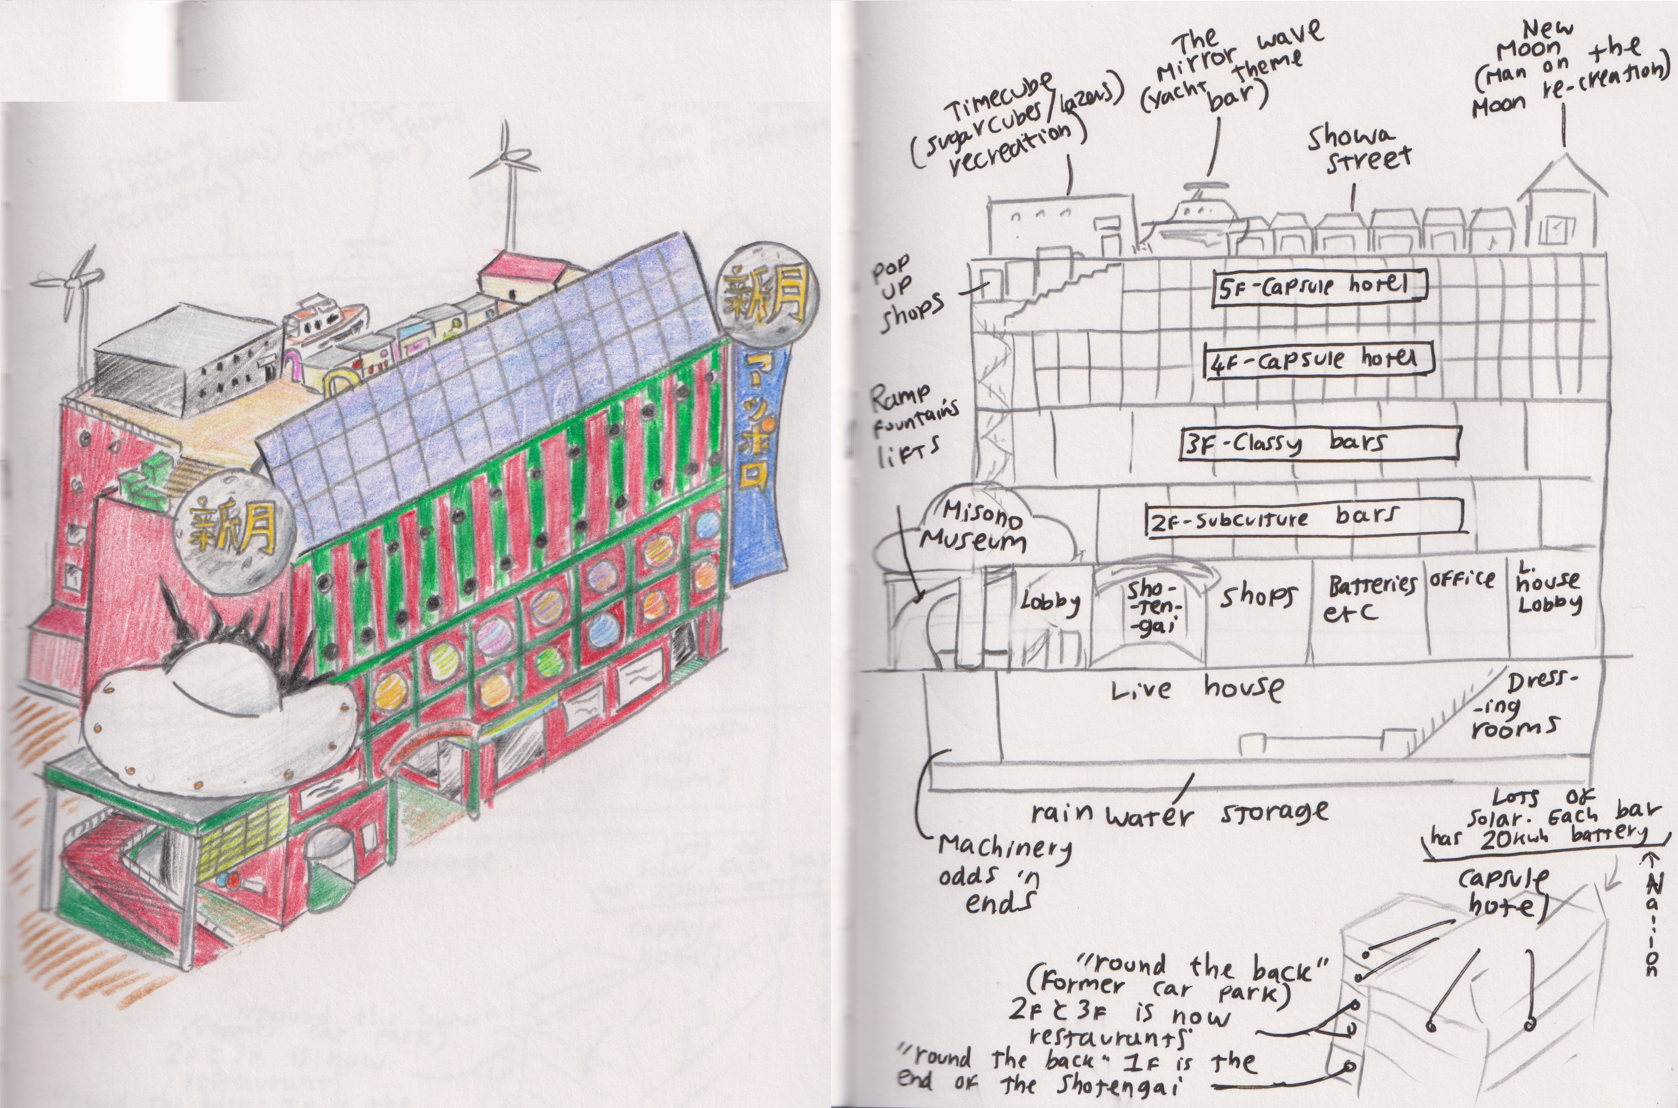 新月
アーッポロ
新月
Timecube
(sugarcubes/lazons)
recreation)
The
Mirror wave
(yacht theme
bar)
New
Moon
(Man on the
Moon re-creation)
Showa
street
Pop
up
shops
5F-Capsule hotel
4F-Capsule hotel
Ramp
fountains
lifts
3F-Classy bars
2F-Subculture bars
Misono
Museum
Lobby
Sho-
-ten-
-gai
shops
Batteries
etc
office
L.
house
Lobby
Live house
Dress-
-ing
rooms
rain water storage
Machinery
odds 'n
ends
Lots of
Solar. Each bar
has 20kwh battery
capsule
hotel
"round the back"
(Former car park)
2F & 3F is now
restaurants
"round the back" 1F is the
end of the Shotengai